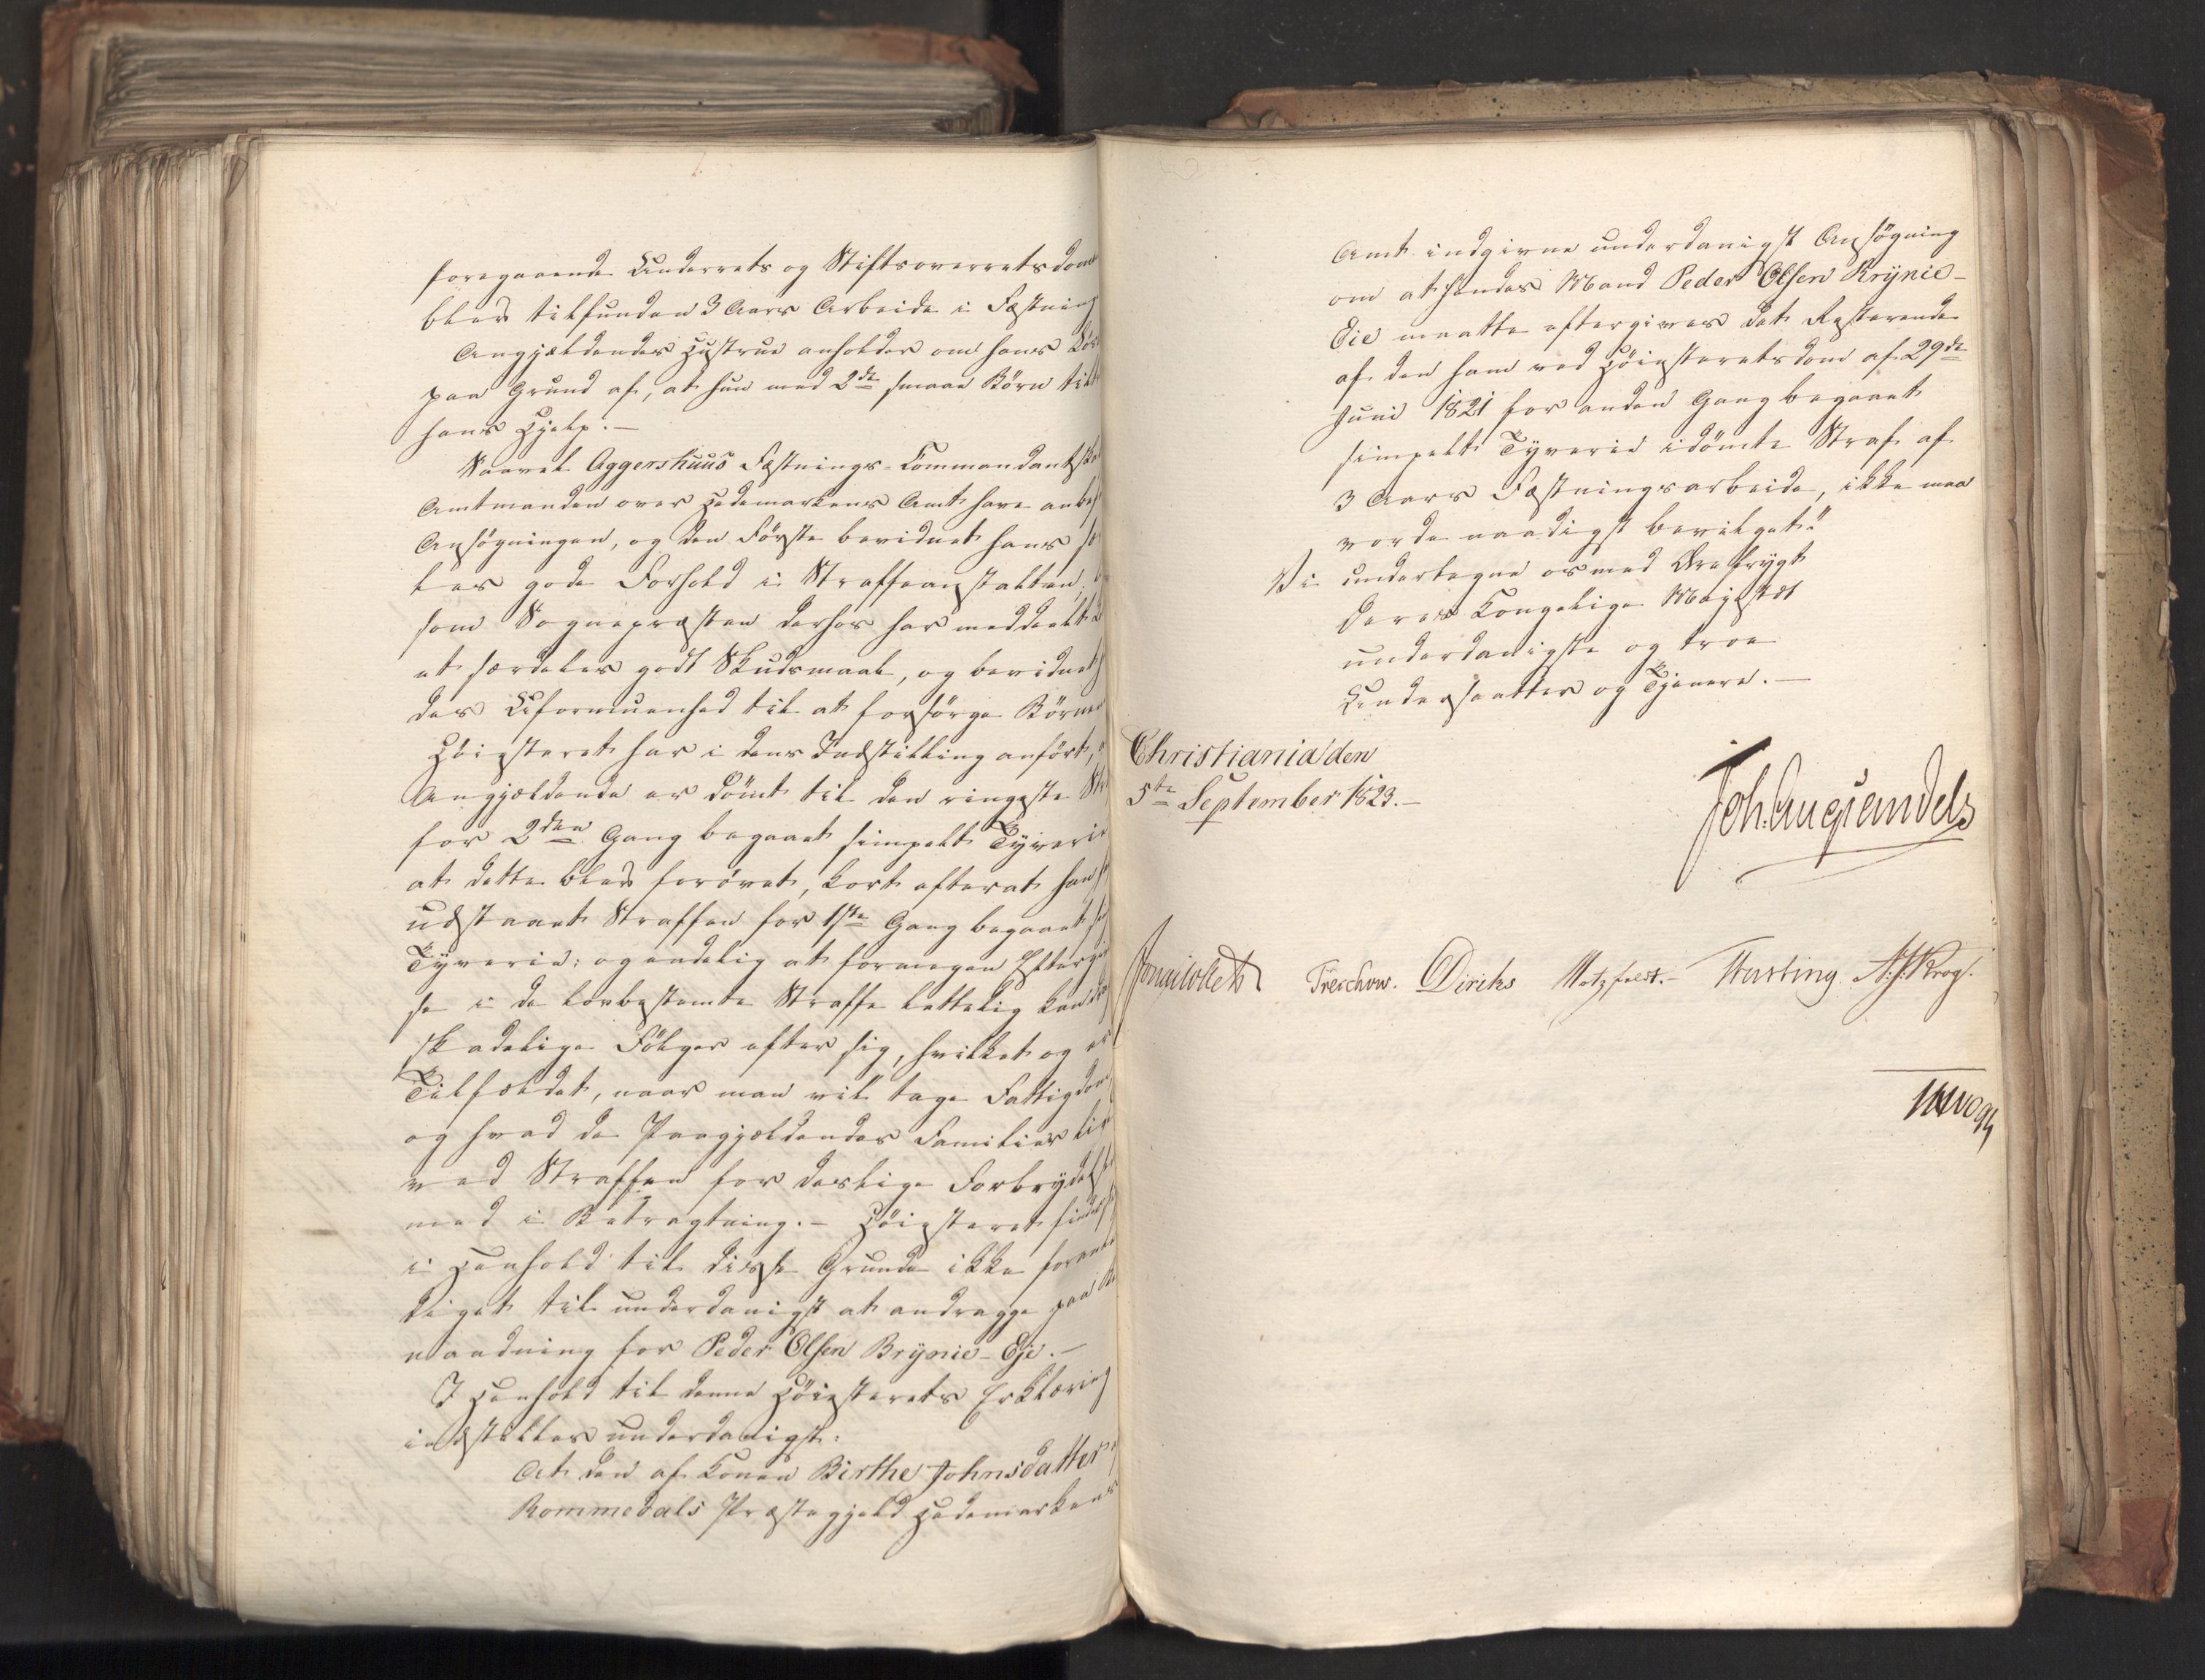 foregaaende Underrets og Stiftsoverretsdom
blev tilfunden 3 Aars Arbeide i Fæstning
Angjældendes Hustrue anholder om hans Løs
paa Grund af, at hun med 2de smaae Børn
hans Hjelp.—
Saavel Aggershuus Fæstnings-Commandantskab
Amtmanden over Hedemarkens Amt have anbef
Ansøgningen, og den Første bevidnet hans
les gode Forhold i Straffeanstalten,
som Sognepræsten derhos har meddeelt
et særdeles godt Skudsmaal, og bevidnet
des Uformuenhed til at forsørge Børnene
Høiesteret har i dens Indstilling anført,
Angjældende er dømt til den ringeste Str
for 2den Gang begaaet simpelt Tyverie
at dette blev forøvet, kort efterat han
udstaaet Straffen for 1ste Gang begaaet
Tyverie; og endelig at formegen Eftergi
se i de lovbestemte Straffe lettelig kan
skadelige Følger efter sig, hvilket og er
Tilfældet, naar man vil tage Fattigdom
og hvad de Paagjældendes Familier lid
ved Straffen for deslige Forbrydels
med i Betragtning.— Høiesteret finder
i Henhold til disse Grunde ikke foran
lediget til underdanigst at andrage paa Be
naadning for Peder Olsen Brynie-Eje.—
I Henhold til denne Høiesterets Erklæring
indstilles underdanigst:
At den af Konen Birthe Johnsdatter
Rommedals Præstegjeld Hedemarkens
Amt indgivne underdanigst Ansøgning
om at hendes Mand Peder Olsen Brynie-
Eie maatte eftergives det Resterende
af den ham ved Høiesteretsdom af 29de
Juni 1821 for anden Gang begaaet
simpelt Tyverie idømte Straf af
3 Aars Fæstningsarbeide, ikke maa
vorde naadigst bevilget."
Vi undertegne os med Ærefrygt
Deres Kongelige Majestæt
underdanigste og troe
Undersaatter og Tjenere.—
Christiania den
5te September 1823.—
Joh: Aug Sandels
Jonas Collett Treschow. Diriks Motzfeldt.— Fasting. A. J. Krog.
Vogt